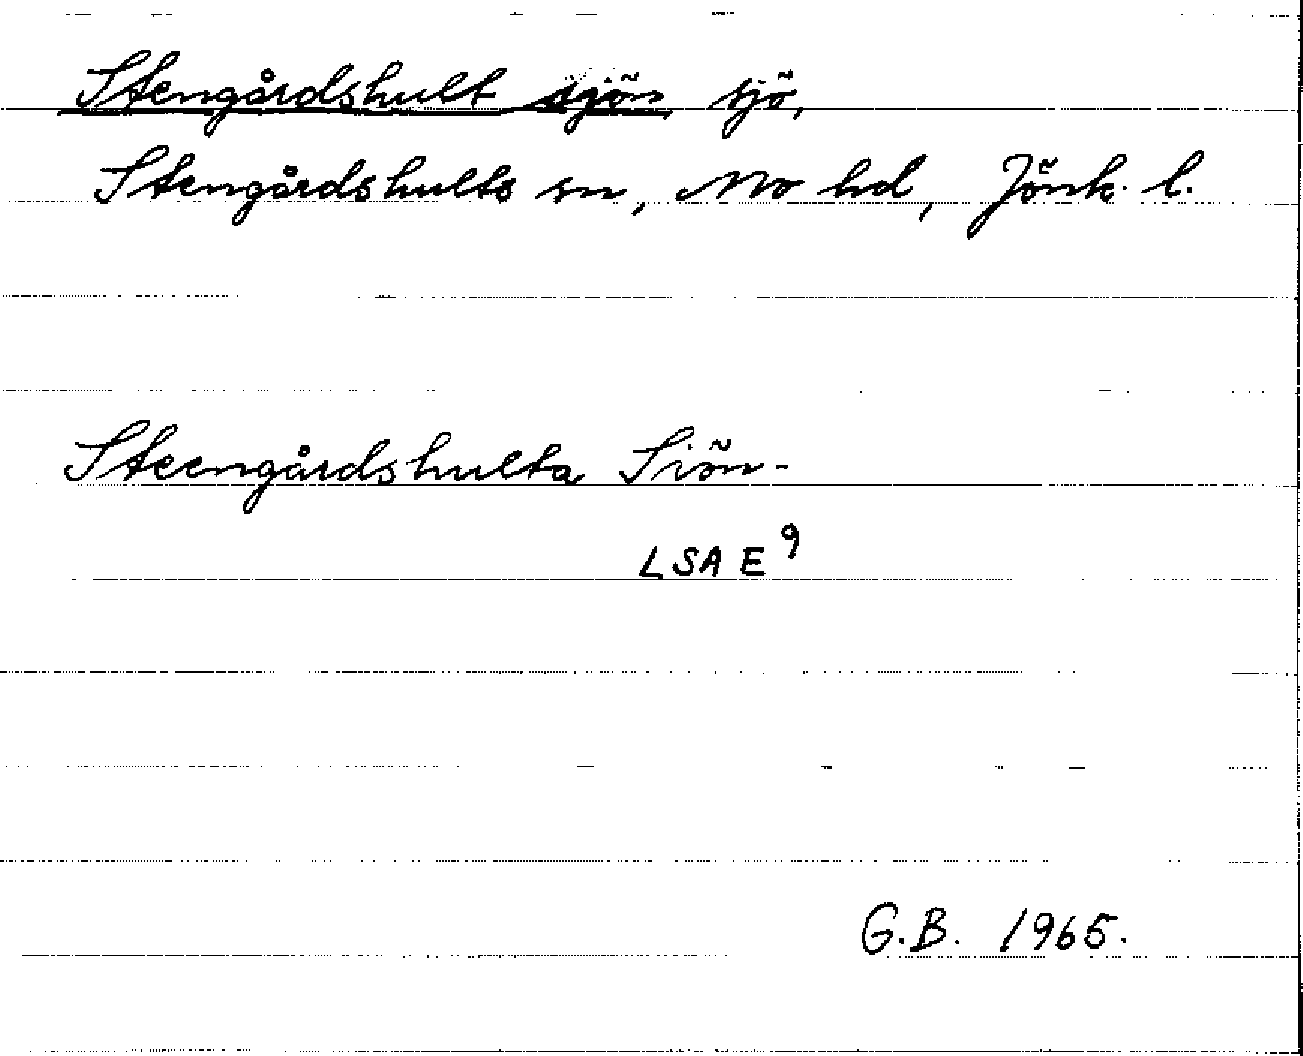 Stengårdshult sjön, sjö,
Stengårdshults sn, Mo hd, Jönk. l.
Steengårdshulta Siön-
LSA E9
G.B. 1965.